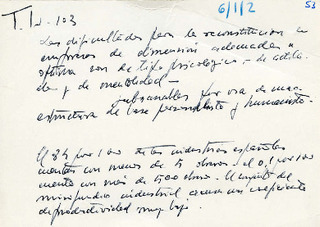 T. Iv - 103
6/1/2
53
Las dificultades para la reconstitución en
empresas de dimensión adecuada u
optima son de tipo psicológico - de actitu
des y de mentalidad -
subsanables por vía de una
estructura de base personalista y humanista.
El 84 por 100 de las industrias españolas
cuentan con menos de 5 obreros y el 0,1 por 100
cuenta con más de 500 obreros. El conjunto del
minifundio industrial acusa un coeficiente
de productividad muy bajo.